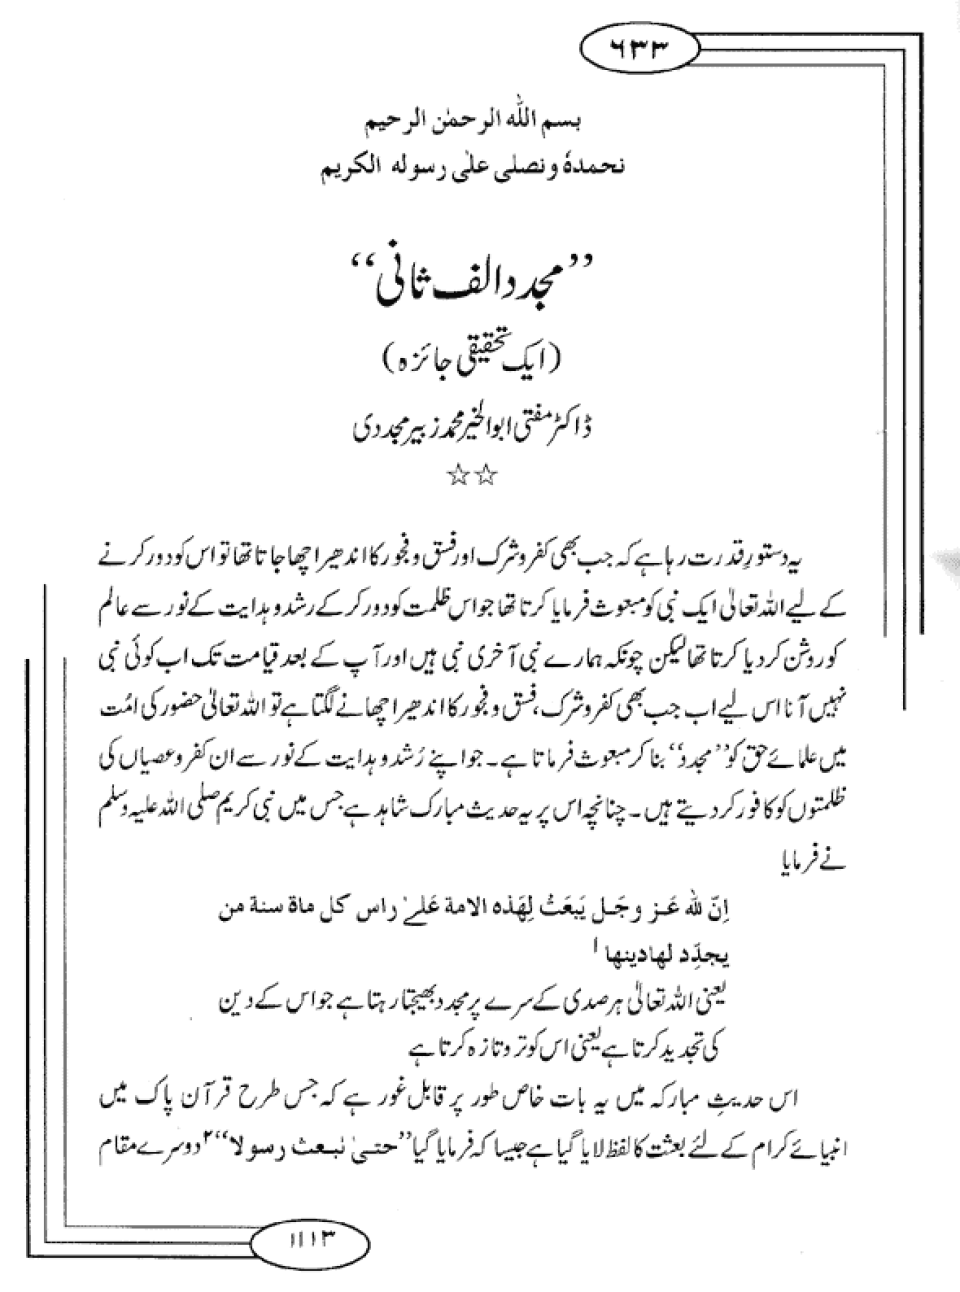 ۶۳۳
بسم الله الرحمٰن الرحيم
نحمدهٗ ونصلی علیٰ رسوله الكريم
’’مجدد الف ثانی‘‘
(ایک تحقیقی جائزہ)
ڈاکٹر مفتی ابوالخیر محمد زبیر مجددی
☆☆
یہ دستورِ قدرت رہا ہے کہ جب بھی کفر و شرک اور فسق و فجور کا اندھیرا چھا جاتا تھا تو اس کو دور کرنے
کے لیے اللہ تعالیٰ ایک نبی کو مبعوث فرمایا کرتا تھا جو اس ظلمت کو دور کر کے رشد و ہدایت کے نور سے عالم
کو روشن کر دیا کرتا تھا لیکن چونکہ ہمارے نبی آخری نبی ہیں اور آپ کے بعد قیامت تک اب کوئی نبی
نہیں آنا اس لیے اب جب بھی کفر و شرک، فسق و فجور کا اندھیرا چھانے لگتا ہے تو اللہ تعالیٰ حضور کی امُت
میں علمائے حق کو ’’مجدد‘‘ بنا کر مبعوث فرماتا ہے۔ جو اپنے رُشد و ہدایت کے نور سے ان کفر و عصیاں کی
ظلمتوں کو کافور کر دیتے ہیں۔ چنانچہ اس پر یہ حدیث مبارک شاہد ہے جس میں نبی کریم صلی اللہ علیہ وسلم
نے فرمایا
اِنّ لله عَـز وجَـل يَبعَثُ لِهَذه الامة عَلےٰ راس كل ماة سنة من
يجدِّد لهادينها ۱
یعنی اللہ تعالیٰ ہر صدی کے سرے پر مجدد بھیجتا رہتا ہے جو اس کے دین
کی تجدید کرتا ہے یعنی اس کو تر و تازہ کرتا ہے
اس حدیثِ مبارکہ میں یہ بات خاص طور پر قابل غور ہے کہ جس طرح قرآن پاک میں
انبیائے کرام کے لئے بعثت کا لفظ لایا گیا ہے جیسا کہ فرمایا گیا ’’حتیٰ نبعث رسولا‘‘۲ دوسرے مقام
۱۱۱۳